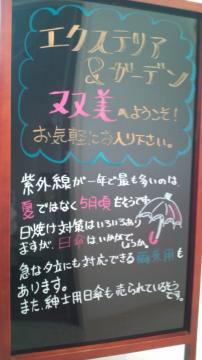 エクステリア
&ガーデン
双美へようこそ!
お気軽にお入り下さい。
紫外線が一年で最も多いのは、
夏ではなく5月頃だそうです。
日焼け対策はいろいろあり
ますが、日傘はいかがで
しょうか。
急な夕立にも対応できる晴雨用も
あります。
また、紳士用日傘も売られているそう
です。